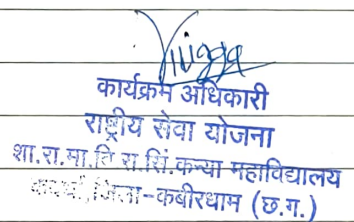 कार्यक्रम अधिकारी
राष्ट्रीय सेवा योजना
शा.रा.मा.वि.रा.सिं.कन्या महाविद्यालय
जिला-कबीरधाम (छ.ग.)